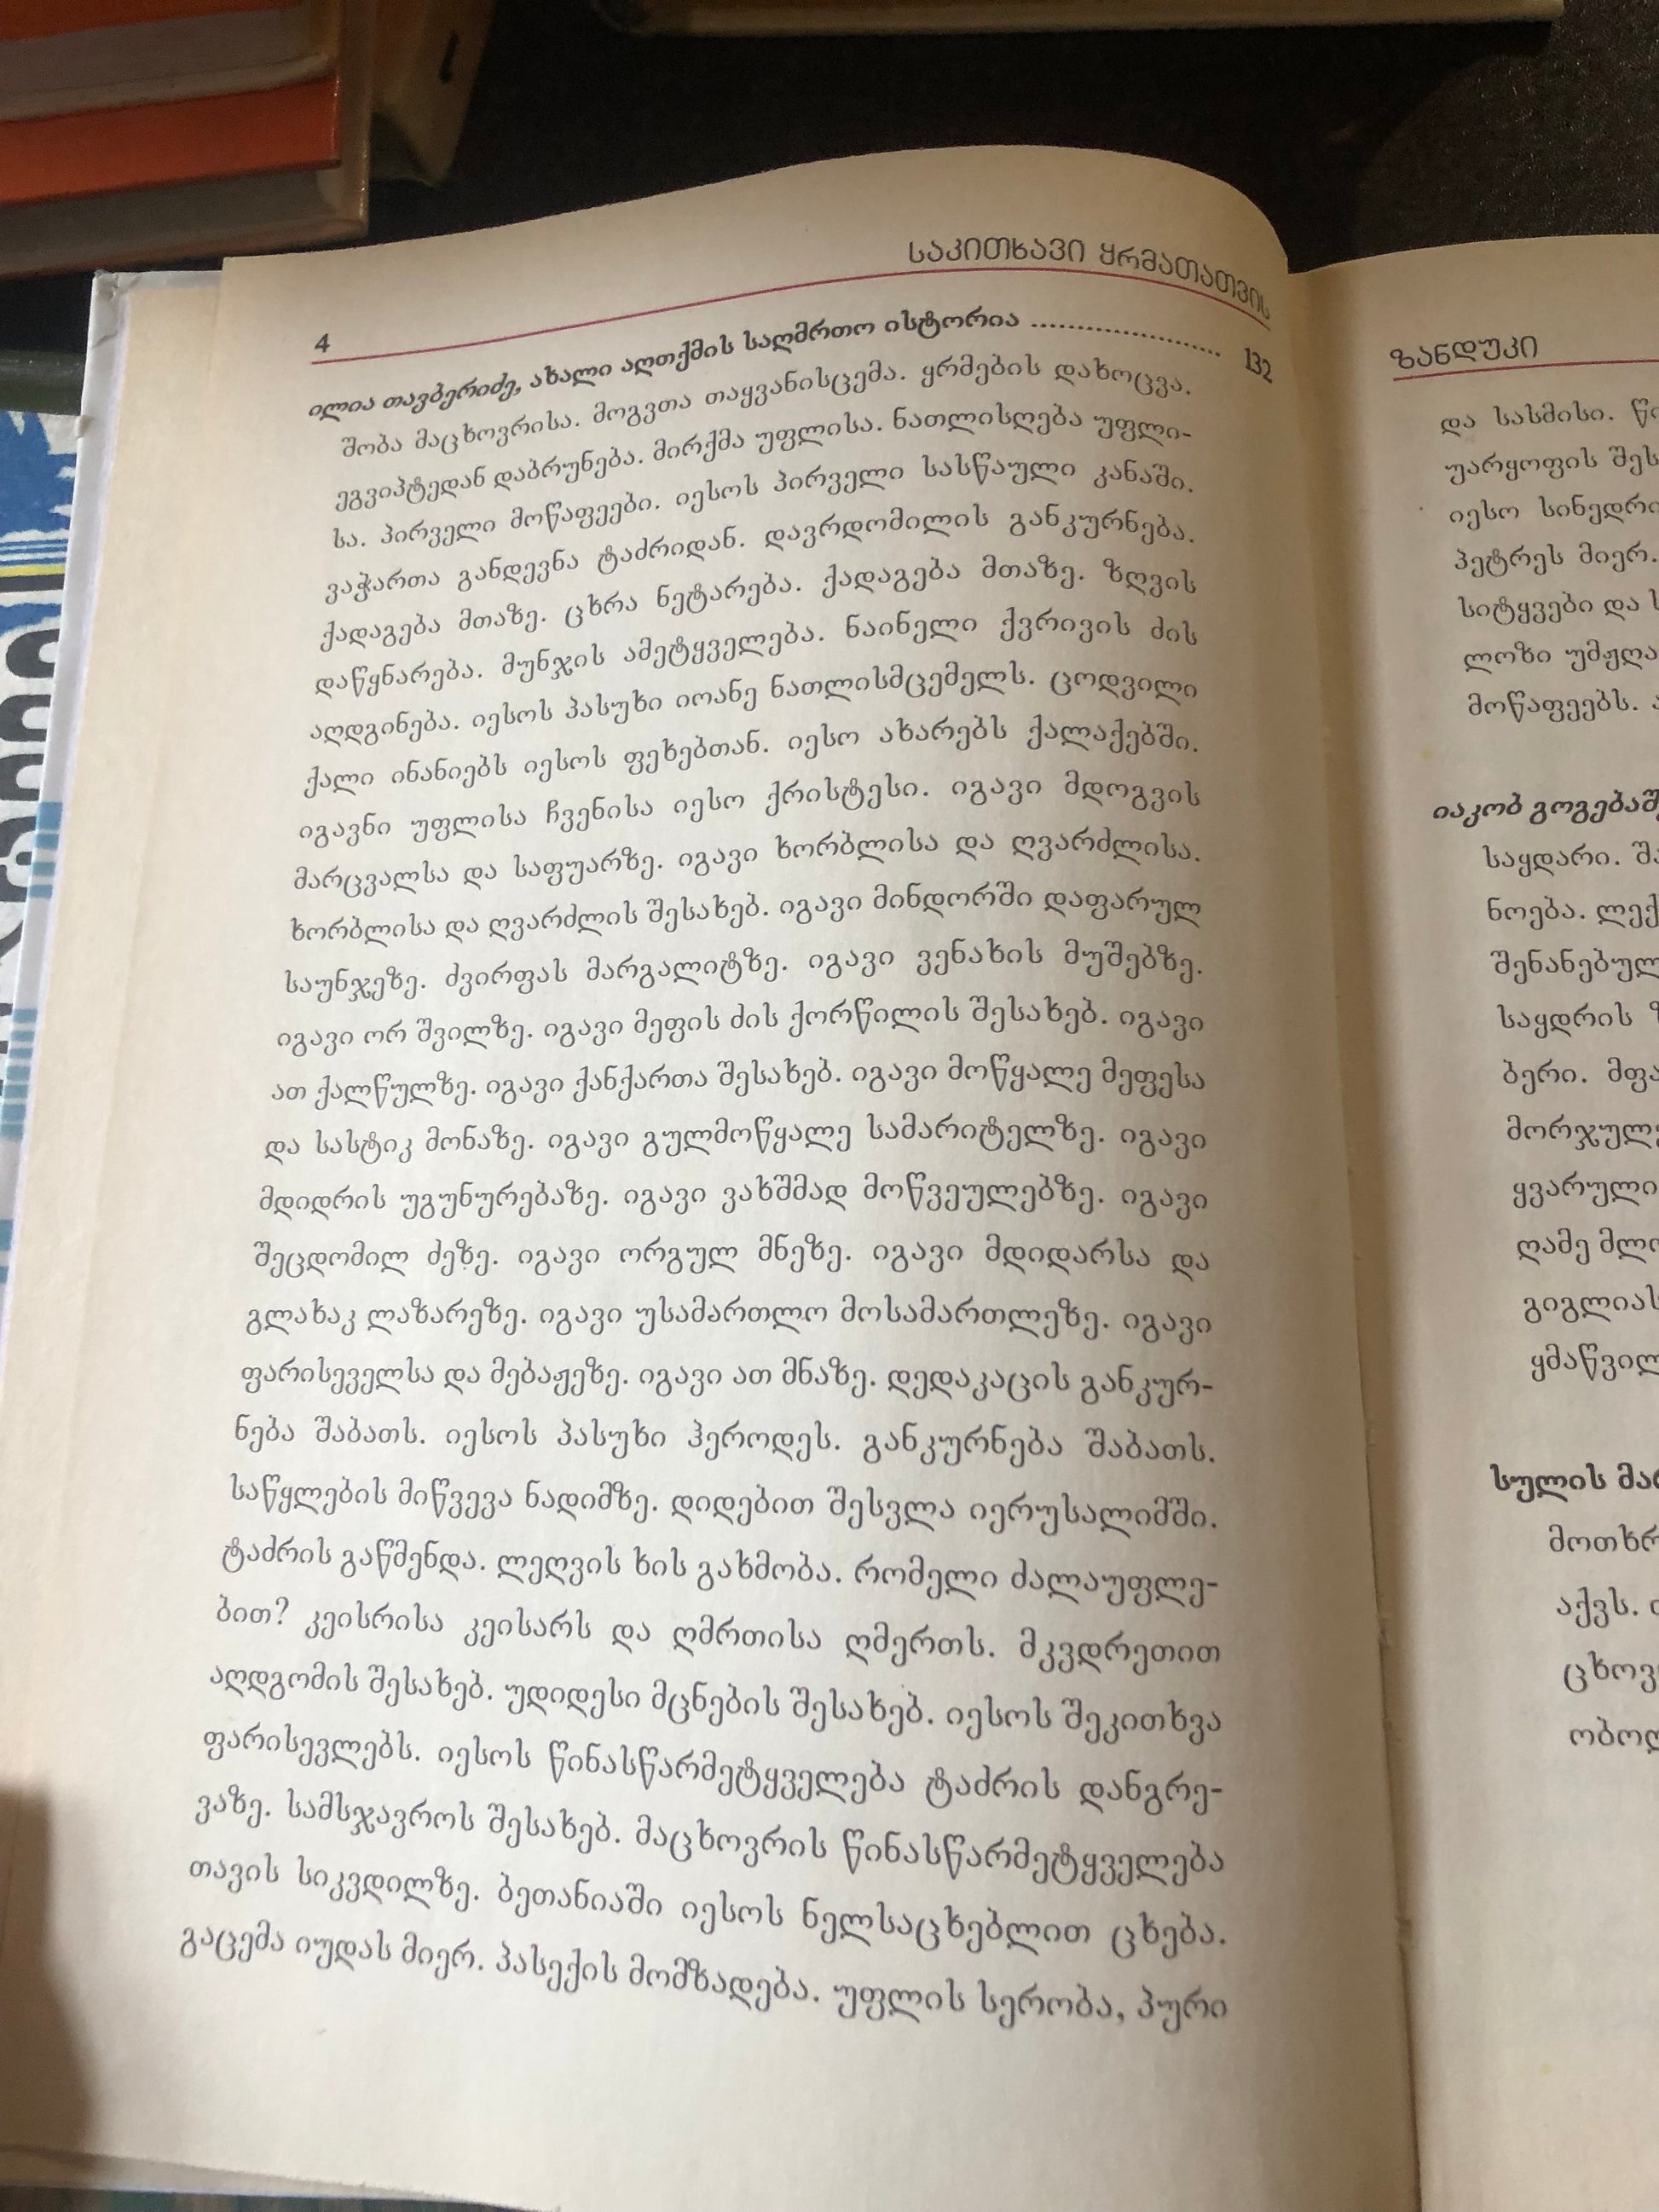 საკითხავი ყრმათათვის
4
ილია თავბერიძე, ახალი აღთქმის საღმრთო ისტორია .......................... 132
შობა მაცხოვრისა. მოგვთა თაყვანისცემა. ყრმების დახოცვა.
ეგვიპტედან დაბრუნება. მირქმა უფლისა. ნათლისღება უფლი-
სა. პირველი მოწაფეები. იესოს პირველი სასწაული კანაში.
ვაჭართა განდევნა ტაძრიდან. დავრდომილის განკურნება.
ქადაგება მთაზე. ცხრა ნეტარება. ქადაგება მთაზე. ზღვის
დაწყნარება. მუნჯის ამეტყველება. ნაინელი ქვრივის ძის
აღდგინება. იესოს პასუხი იოანე ნათლისმცემელს. ცოდვილი
ქალი ინანიებს იესოს ფეხებთან. იესო ახარებს ქალაქებში.
იგავნი უფლისა ჩვენისა იესო ქრისტესი. იგავი მდოგვის
მარცვალსა და საფუარზე. იგავი ხორბლისა და ღვარძლისა.
ხორბლისა და ღვარძლის შესახებ. იგავი მინდორში დაფარულ
საუნჯეზე. ძვირფას მარგალიტზე. იგავი ვენახის მუშებზე.
იგავი ორ შვილზე. იგავი მეფის ძის ქორწილის შესახებ. იგავი
ათ ქალწულზე. იგავი ქანქართა შესახებ. იგავი მოწყალე მეფესა
და სასტიკ მონაზე. იგავი გულმოწყალე სამარიტელზე. იგავი
მდიდრის უგუნურებაზე. იგავი ვახშმად მოწვეულებზე. იგავი
შეცდომილ ძეზე. იგავი ორგულ მნეზე. იგავი მდიდარსა და
გლახაკ ლაზარეზე. იგავი უსამართლო მოსამართლეზე. იგავი
ფარისეველსა და მებაჟეზე. იგავი ათ მნაზე. დედაკაცის განკურ-
ნება შაბათს. იესოს პასუხი ჰეროდეს. განკურნება შაბათს.
საწყლების მიწვევა ნადიმზე. დიდებით შესვლა იერუსალიმში.
ტაძრის გაწმენდა. ლეღვის ხის გახმობა. რომელი ძალაუფლე-
ბით? კეისრისა კეისარს და ღმრთისა ღმერთს. მკვდრეთით
აღდგომის შესახებ. უდიდესი მცნების შესახებ. იესოს შეკითხვა
ფარისევლებს. იესოს წინასწარმეტყველება ტაძრის დანგრე-
ვაზე. სამსჯავროს შესახებ. მაცხოვრის წინასწარმეტყველება
თავის სიკვდილზე. ბეთანიაში იესოს ნელსაცხებლით ცხება.
გაცემა იუდას მიერ. პასექის მომზადება. უფლის სერობა, პური
ზანდუკი
და სასმისი.
უარყოფის
იესო
პეტრეს მიერ.
სიტყვები და
მოწაფეებს.
იაკობ
საყდარი.
ნოება.
საყდრის
ბერი.
ღამე
სულის
აქვს.